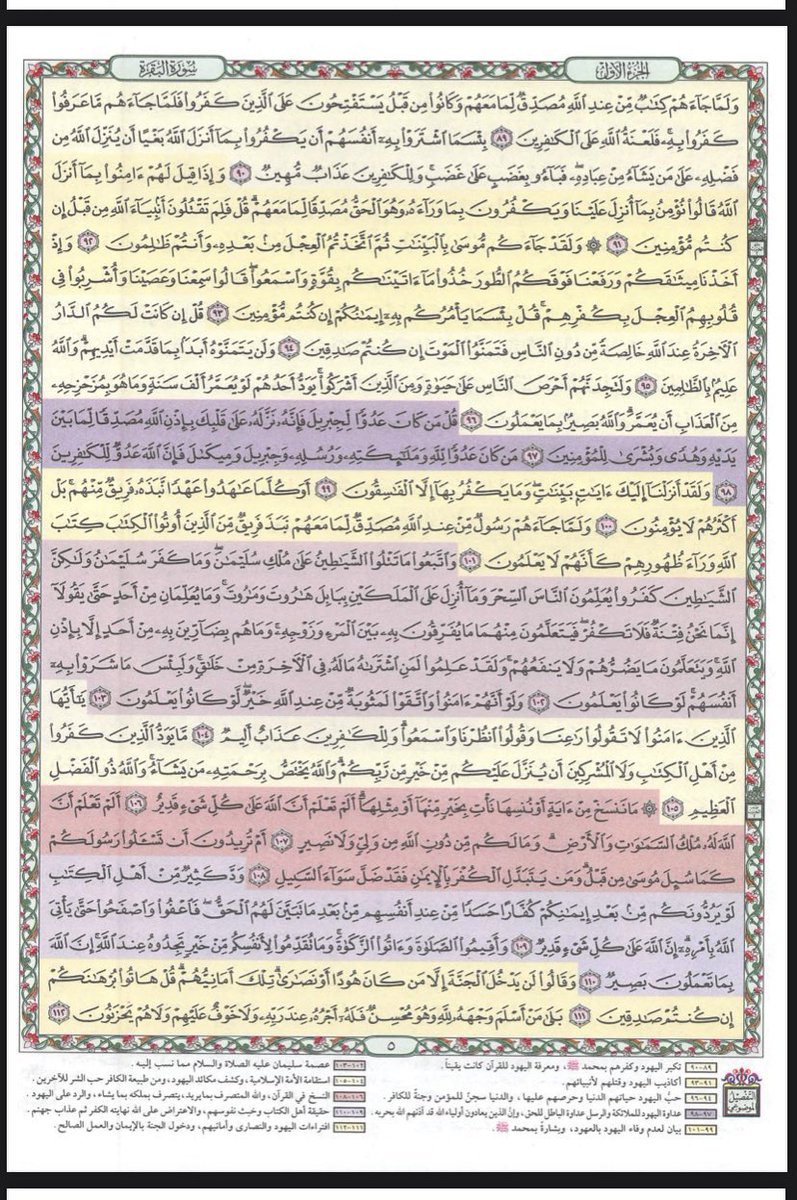 الجزء الأول
سورة البقرة
وَلَمَّا جَآءَهُمْ كِتَٰبٌ مِّنْ عِندِ ٱللَّهِ مُصَدِّقٌ لِّمَا مَعَهُمْ وَكَانُوا۟ مِن قَبْلُ يَسْتَفْتِحُونَ عَلَى ٱلَّذِينَ كَفَرُوا۟ فَلَمَّا جَآءَهُم مَّا عَرَفُوا۟
كَفَرُوا۟ بِهِۦ ۚ فَلَعْنَةُ ٱللَّهِ عَلَى ٱلْكَٰفِرِينَ ٨٩ بِئْسَمَا ٱشْتَرَوْا۟ بِهِۦٓ أَنفُسَهُمْ أَن يَكْفُرُوا۟ بِمَآ أَنزَلَ ٱللَّهُ بَغْيًا أَن يُنَزِّلَ ٱللَّهُ مِن
فَضْلِهِۦ عَلَىٰ مَن يَشَآءُ مِنْ عِبَادِهِۦ ۖ فَبَآءُو بِغَضَبٍ عَلَىٰ غَضَبٍ ۚ وَلِلْكَٰفِرِينَ عَذَابٌ مُّهِينٌ ٩٠ وَإِذَا قِيلَ لَهُمْ ءَامِنُوا۟ بِمَآ أَنزَلَ
ٱللَّهُ قَالُوا۟ نُؤْمِنُ بِمَآ أُنزِلَ عَلَيْنَا وَيَكْفُرُونَ بِمَا وَرَآءَهُۥ وَهُوَ ٱلْحَقُّ مُصَدِّقًا لِّمَا مَعَهُمْ ۗ قُلْ فَلِمَ تَقْتُلُونَ أَنۢبِيَآءَ ٱللَّهِ مِن قَبْلُ إِن
كُنتُم مُّؤْمِنِينَ ٩١ ۞ وَلَقَدْ جَآءَكُم مُّوسَىٰ بِٱلْبَيِّنَٰتِ ثُمَّ ٱتَّخَذْتُمُ ٱلْعِجْلَ مِنۢ بَعْدِهِۦ وَأَنتُمْ ظَٰلِمُونَ ٩٢ وَإِذْ
أَخَذْنَا مِيثَٰقَكُمْ وَرَفَعْنَا فَوْقَكُمُ ٱلطُّورَ خُذُوا۟ مَآ ءَاتَيْنَٰكُم بِقُوَّةٍ وَٱسْمَعُوا۟ ۖ قَالُوا۟ سَمِعْنَا وَعَصَيْنَا وَأُشْرِبُوا۟ فِى
قُلُوبِهِمُ ٱلْعِجْلَ بِكُفْرِهِمْ ۚ قُلْ بِئْسَمَا يَأْمُرُكُم بِهِۦٓ إِيمَٰنُكُمْ إِن كُنتُم مُّؤْمِنِينَ ٩٣ قُلْ إِن كَانَتْ لَكُمُ ٱلدَّارُ
ٱلْءَاخِرَةُ عِندَ ٱللَّهِ خَالِصَةً مِّن دُونِ ٱلنَّاسِ فَتَمَنَّوُا۟ ٱلْمَوْتَ إِن كُنتُمْ صَٰدِقِينَ ٩٤ وَلَن يَتَمَنَّوْهُ أَبَدًۢا بِمَا قَدَّمَتْ أَيْدِيهِمْ ۗ وَٱللَّهُ
عَلِيمٌۢ بِٱلظَّٰلِمِينَ ٩٥ وَلَتَجِدَنَّهُمْ أَحْرَصَ ٱلنَّاسِ عَلَىٰ حَيَوٰةٍ وَمِنَ ٱلَّذِينَ أَشْرَكُوا۟ ۚ يَوَدُّ أَحَدُهُمْ لَوْ يُعَمَّرُ أَلْفَ سَنَةٍ وَمَا هُوَ بِمُزَحْزِحِهِۦ
مِنَ ٱلْعَذَابِ أَن يُعَمَّرَ ۗ وَٱللَّهُ بَصِيرٌۢ بِمَا يَعْمَلُونَ ٩٦ قُلْ مَن كَانَ عَدُوًّا لِّجِبْرِيلَ فَإِنَّهُۥ نَزَّلَهُۥ عَلَىٰ قَلْبِكَ بِإِذْنِ ٱللَّهِ مُصَدِّقًا لِّمَا بَيْنَ
يَدَيْهِ وَهُدًى وَبُشْرَىٰ لِلْمُؤْمِنِينَ ٩٧ مَن كَانَ عَدُوًّا لِّلَّهِ وَمَلَٰٓئِكَتِهِۦ وَرُسُلِهِۦ وَجِبْرِيلَ وَمِيكَىٰلَ فَإِنَّ ٱللَّهَ عَدُوٌّ لِّلْكَٰفِرِينَ
٩٨ وَلَقَدْ أَنزَلْنَآ إِلَيْكَ ءَايَٰتٍۭ بَيِّنَٰتٍ ۖ وَمَا يَكْفُرُ بِهَآ إِلَّا ٱلْفَٰسِقُونَ ٩٩ أَوَكُلَّمَا عَٰهَدُوا۟ عَهْدًا نَّبَذَهُۥ فَرِيقٌ مِّنْهُم ۚ بَلْ
أَكْثَرُهُمْ لَا يُؤْمِنُونَ ١٠٠ وَلَمَّا جَآءَهُمْ رَسُولٌ مِّنْ عِندِ ٱللَّهِ مُصَدِّقٌ لِّمَا مَعَهُمْ نَبَذَ فَرِيقٌ مِّنَ ٱلَّذِينَ أُوتُوا۟ ٱلْكِتَٰبَ كِتَٰبَ
ٱللَّهِ وَرَآءَ ظُهُورِهِمْ كَأَنَّهُمْ لَا يَعْلَمُونَ ١٠١ وَٱتَّبَعُوا۟ مَا تَتْلُوا۟ ٱلشَّيَٰطِينُ عَلَىٰ مُلْكِ سُلَيْمَٰنَ ۖ وَمَا كَفَرَ سُلَيْمَٰنُ وَلَٰكِنَّ
ٱلشَّيَٰطِينَ كَفَرُوا۟ يُعَلِّمُونَ ٱلنَّاسَ ٱلسِّحْرَ وَمَآ أُنزِلَ عَلَى ٱلْمَلَكَيْنِ بِبَابِلَ هَٰرُوتَ وَمَٰرُوتَ ۚ وَمَا يُعَلِّمَانِ مِنْ أَحَدٍ حَتَّىٰ يَقُولَآ
إِنَّمَا نَحْنُ فِتْنَةٌ فَلَا تَكْفُرْ ۖ فَيَتَعَلَّمُونَ مِنْهُمَا مَا يُفَرِّقُونَ بِهِۦ بَيْنَ ٱلْمَرْءِ وَزَوْجِهِۦ ۚ وَمَا هُم بِضَآرِّينَ بِهِۦ مِنْ أَحَدٍ إِلَّا بِإِذْنِ
ٱللَّهِ ۚ وَيَتَعَلَّمُونَ مَا يَضُرُّهُمْ وَلَا يَنفَعُهُمْ ۚ وَلَقَدْ عَلِمُوا۟ لَمَنِ ٱشْتَرَىٰهُ مَا لَهُۥ فِى ٱلْءَاخِرَةِ مِنْ خَلَٰقٍ ۚ وَلَبِئْسَ مَا شَرَوْا۟ بِهِۦٓ
أَنفُسَهُمْ ۚ لَوْ كَانُوا۟ يَعْلَمُونَ ١٠٢ وَلَوْ أَنَّهُمْ ءَامَنُوا۟ وَٱتَّقَوْا۟ لَمَثُوبَةٌ مِّنْ عِندِ ٱللَّهِ خَيْرٌ ۖ لَّوْ كَانُوا۟ يَعْلَمُونَ ١٠٣ يَٰٓأَيُّهَا
ٱلَّذِينَ ءَامَنُوا۟ لَا تَقُولُوا۟ رَٰعِنَا وَقُولُوا۟ ٱنظُرْنَا وَٱسْمَعُوا۟ ۗ وَلِلْكَٰفِرِينَ عَذَابٌ أَلِيمٌ ١٠٤ مَّا يَوَدُّ ٱلَّذِينَ كَفَرُوا۟
مِنْ أَهْلِ ٱلْكِتَٰبِ وَلَا ٱلْمُشْرِكِينَ أَن يُنَزَّلَ عَلَيْكُم مِّنْ خَيْرٍ مِّن رَّبِّكُمْ ۗ وَٱللَّهُ يَخْتَصُّ بِرَحْمَتِهِۦ مَن يَشَآءُ ۚ وَٱللَّهُ ذُو ٱلْفَضْلِ
ٱلْعَظِيمِ ١٠٥ ۞ مَا نَنسَخْ مِنْ ءَايَةٍ أَوْ نُنسِهَا نَأْتِ بِخَيْرٍ مِّنْهَآ أَوْ مِثْلِهَآ ۗ أَلَمْ تَعْلَمْ أَنَّ ٱللَّهَ عَلَىٰ كُلِّ شَىْءٍ قَدِيرٌ ١٠٦ أَلَمْ تَعْلَمْ أَنَّ
ٱللَّهَ لَهُۥ مُلْكُ ٱلسَّمَٰوَٰتِ وَٱلْأَرْضِ ۗ وَمَا لَكُم مِّن دُونِ ٱللَّهِ مِن وَلِىٍّ وَلَا نَصِيرٍ ١٠٧ أَمْ تُرِيدُونَ أَن تَسْـَٔلُوا۟ رَسُولَكُمْ
كَمَا سُئِلَ مُوسَىٰ مِن قَبْلُ ۗ وَمَن يَتَبَدَّلِ ٱلْكُفْرَ بِٱلْإِيمَٰنِ فَقَدْ ضَلَّ سَوَآءَ ٱلسَّبِيلِ ١٠٨ وَدَّ كَثِيرٌ مِّنْ أَهْلِ ٱلْكِتَٰبِ
لَوْ يَرُدُّونَكُم مِّنۢ بَعْدِ إِيمَٰنِكُمْ كُفَّارًا حَسَدًا مِّنْ عِندِ أَنفُسِهِم مِّنۢ بَعْدِ مَا تَبَيَّنَ لَهُمُ ٱلْحَقُّ ۖ فَٱعْفُوا۟ وَٱصْفَحُوا۟ حَتَّىٰ يَأْتِىَ
ٱللَّهُ بِأَمْرِهِۦٓ ۗ إِنَّ ٱللَّهَ عَلَىٰ كُلِّ شَىْءٍ قَدِيرٌ ١٠٩ وَأَقِيمُوا۟ ٱلصَّلَوٰةَ وَءَاتُوا۟ ٱلزَّكَوٰةَ ۚ وَمَا تُقَدِّمُوا۟ لِأَنفُسِكُم مِّنْ خَيْرٍ تَجِدُوهُ عِندَ ٱللَّهِ ۗ إِنَّ ٱللَّهَ
بِمَا تَعْمَلُونَ بَصِيرٌ ١١٠ وَقَالُوا۟ لَن يَدْخُلَ ٱلْجَنَّةَ إِلَّا مَن كَانَ هُودًا أَوْ نَصَٰرَىٰ ۗ تِلْكَ أَمَانِيُّهُمْ ۗ قُلْ هَاتُوا۟ بُرْهَٰنَكُمْ
إِن كُنتُمْ صَٰدِقِينَ ١١١ بَلَىٰ مَنْ أَسْلَمَ وَجْهَهُۥ لِلَّهِ وَهُوَ مُحْسِنٌ فَلَهُۥٓ أَجْرُهُۥ عِندَ رَبِّهِۦ وَلَا خَوْفٌ عَلَيْهِمْ وَلَا هُمْ يَحْزَنُونَ ١١٢
٥
التفصيل الموضوعي
٨٩-٩٠ تكبر اليهود وكفرهم بمحمد ﷺ، ومعرفة اليهود للقرآن كانت يقيناً.
٩١-٩٣ أكاذيب اليهود وقتلهم لأنبيائهم.
٩٤-٩٦ حبُّ اليهود حياتهم الدنيا وحرصهم عليها، والدنيا سجنٌ للمؤمن وجنةٌ للكافر.
٩٧-٩٨ عداوة اليهود للملائكة والرسل عداوة الباطل للحق، وإنَّ الذين يعادون أولياء الله قد آذنهم الله بحربه.
٩٩-١٠١ بيان لعدم وفاء اليهود بالعهود، وبشارةٌ بمحمد ﷺ.
١٠٢-١٠٣ عصمة سليمان عليه الصلاة والسلام مما نسب إليه.
١٠٤-١٠٥ استقامة الأمة الإسلامية، وكشف مكائد اليهود، ومن طبيعة الكافر حب الشر للآخرين.
١٠٦-١٠٨ النسخ في القرآن، والله المتصرف بمايريد، يتصرف بملكه بما يشاء، والرد على اليهود.
١٠٩-١١٠ حقيقة أهل الكتاب وخبث نفوسهم، والاعتراض على الله نهايته الكفر ثم عذاب جهنم.
١١١-١١٢ افتراءات اليهود والنصارى وأمانيهم، ودخول الجنة بالإيمان والعمل الصالح.